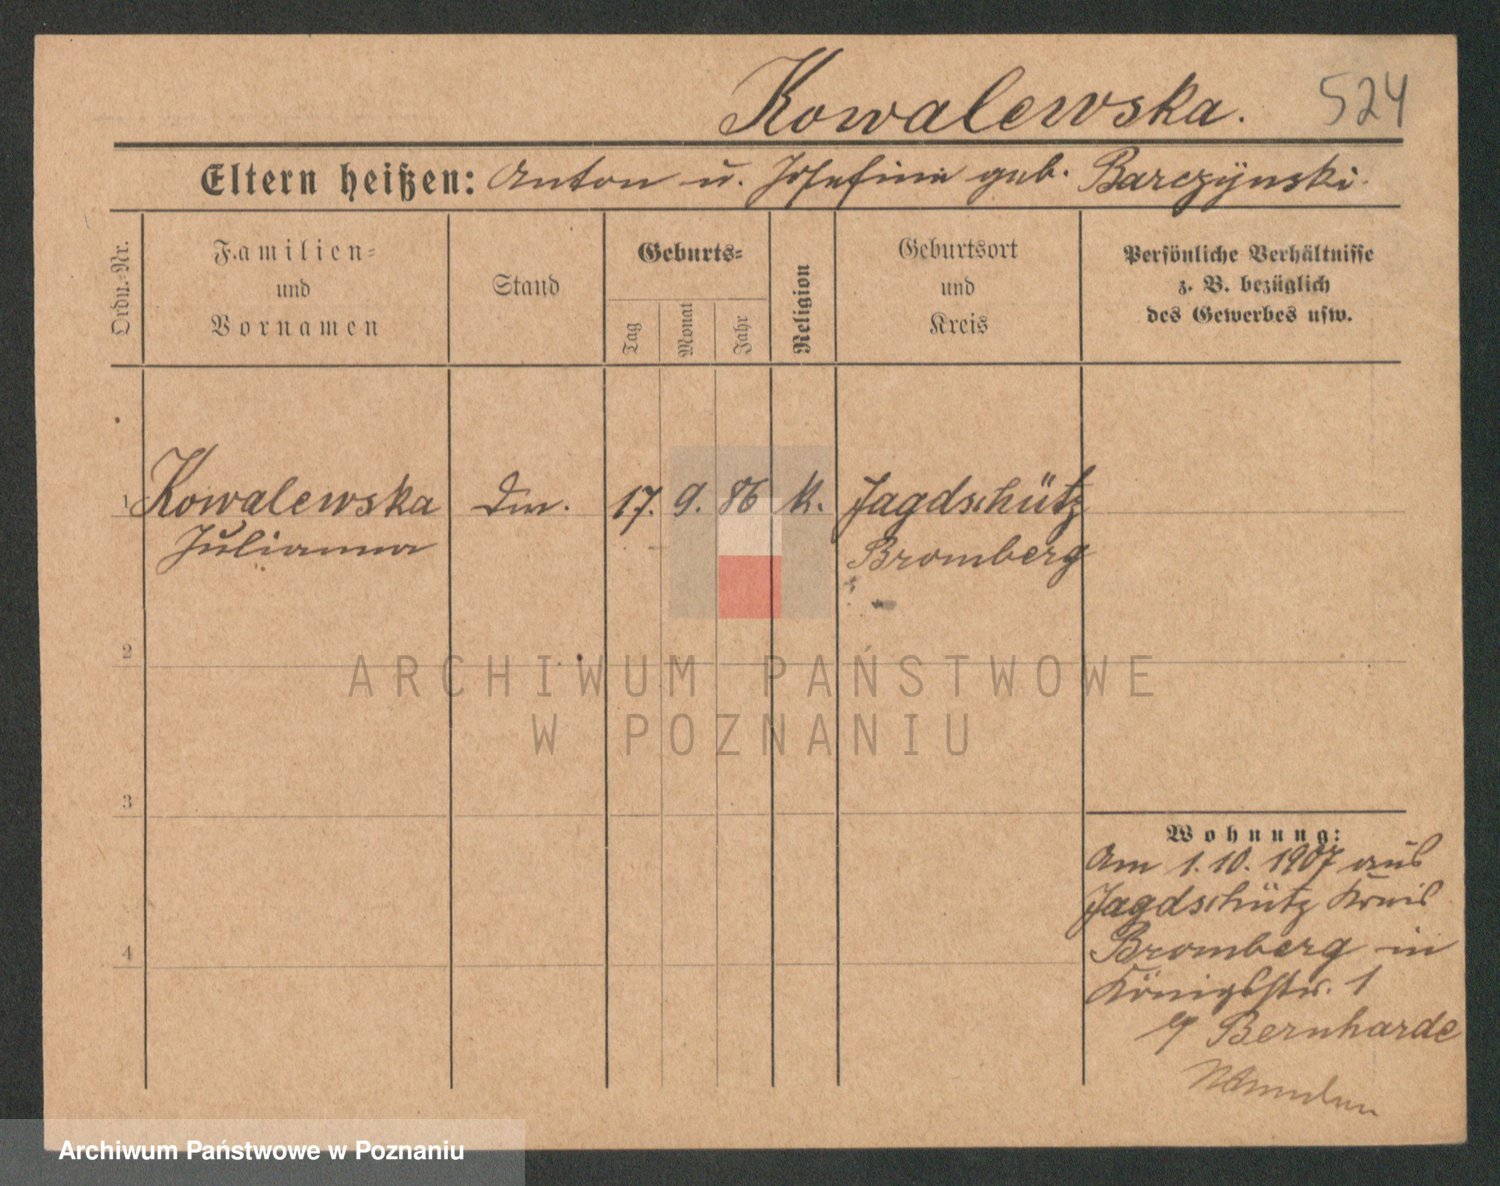 Kowalewska. 524
Eltern heißen: Anton u. Josefine geb. Barczynski.
Ordn.-Nr.
Familien-
und
Vornamen
Stand
Geburts-
Tag
Monat
Jahr
Religion
Geburtsort
und
Kreis
Persönliche Verhältnisse
z. B. bezüglich
des Gewerbes usw.
1 Kowalewska 17. 9. 86 k. Jagdschütz
Julianna Bromberg
2
ARCHIWUM PAŃSTWOWE
W POZNANIU
3
Wohnung:
Am 1.10.1907 aus
Jagdschütz Kreis
4
Bromberg in
Königsstr. 1
Bernharde
Archiwum Państwowe w Poznaniu